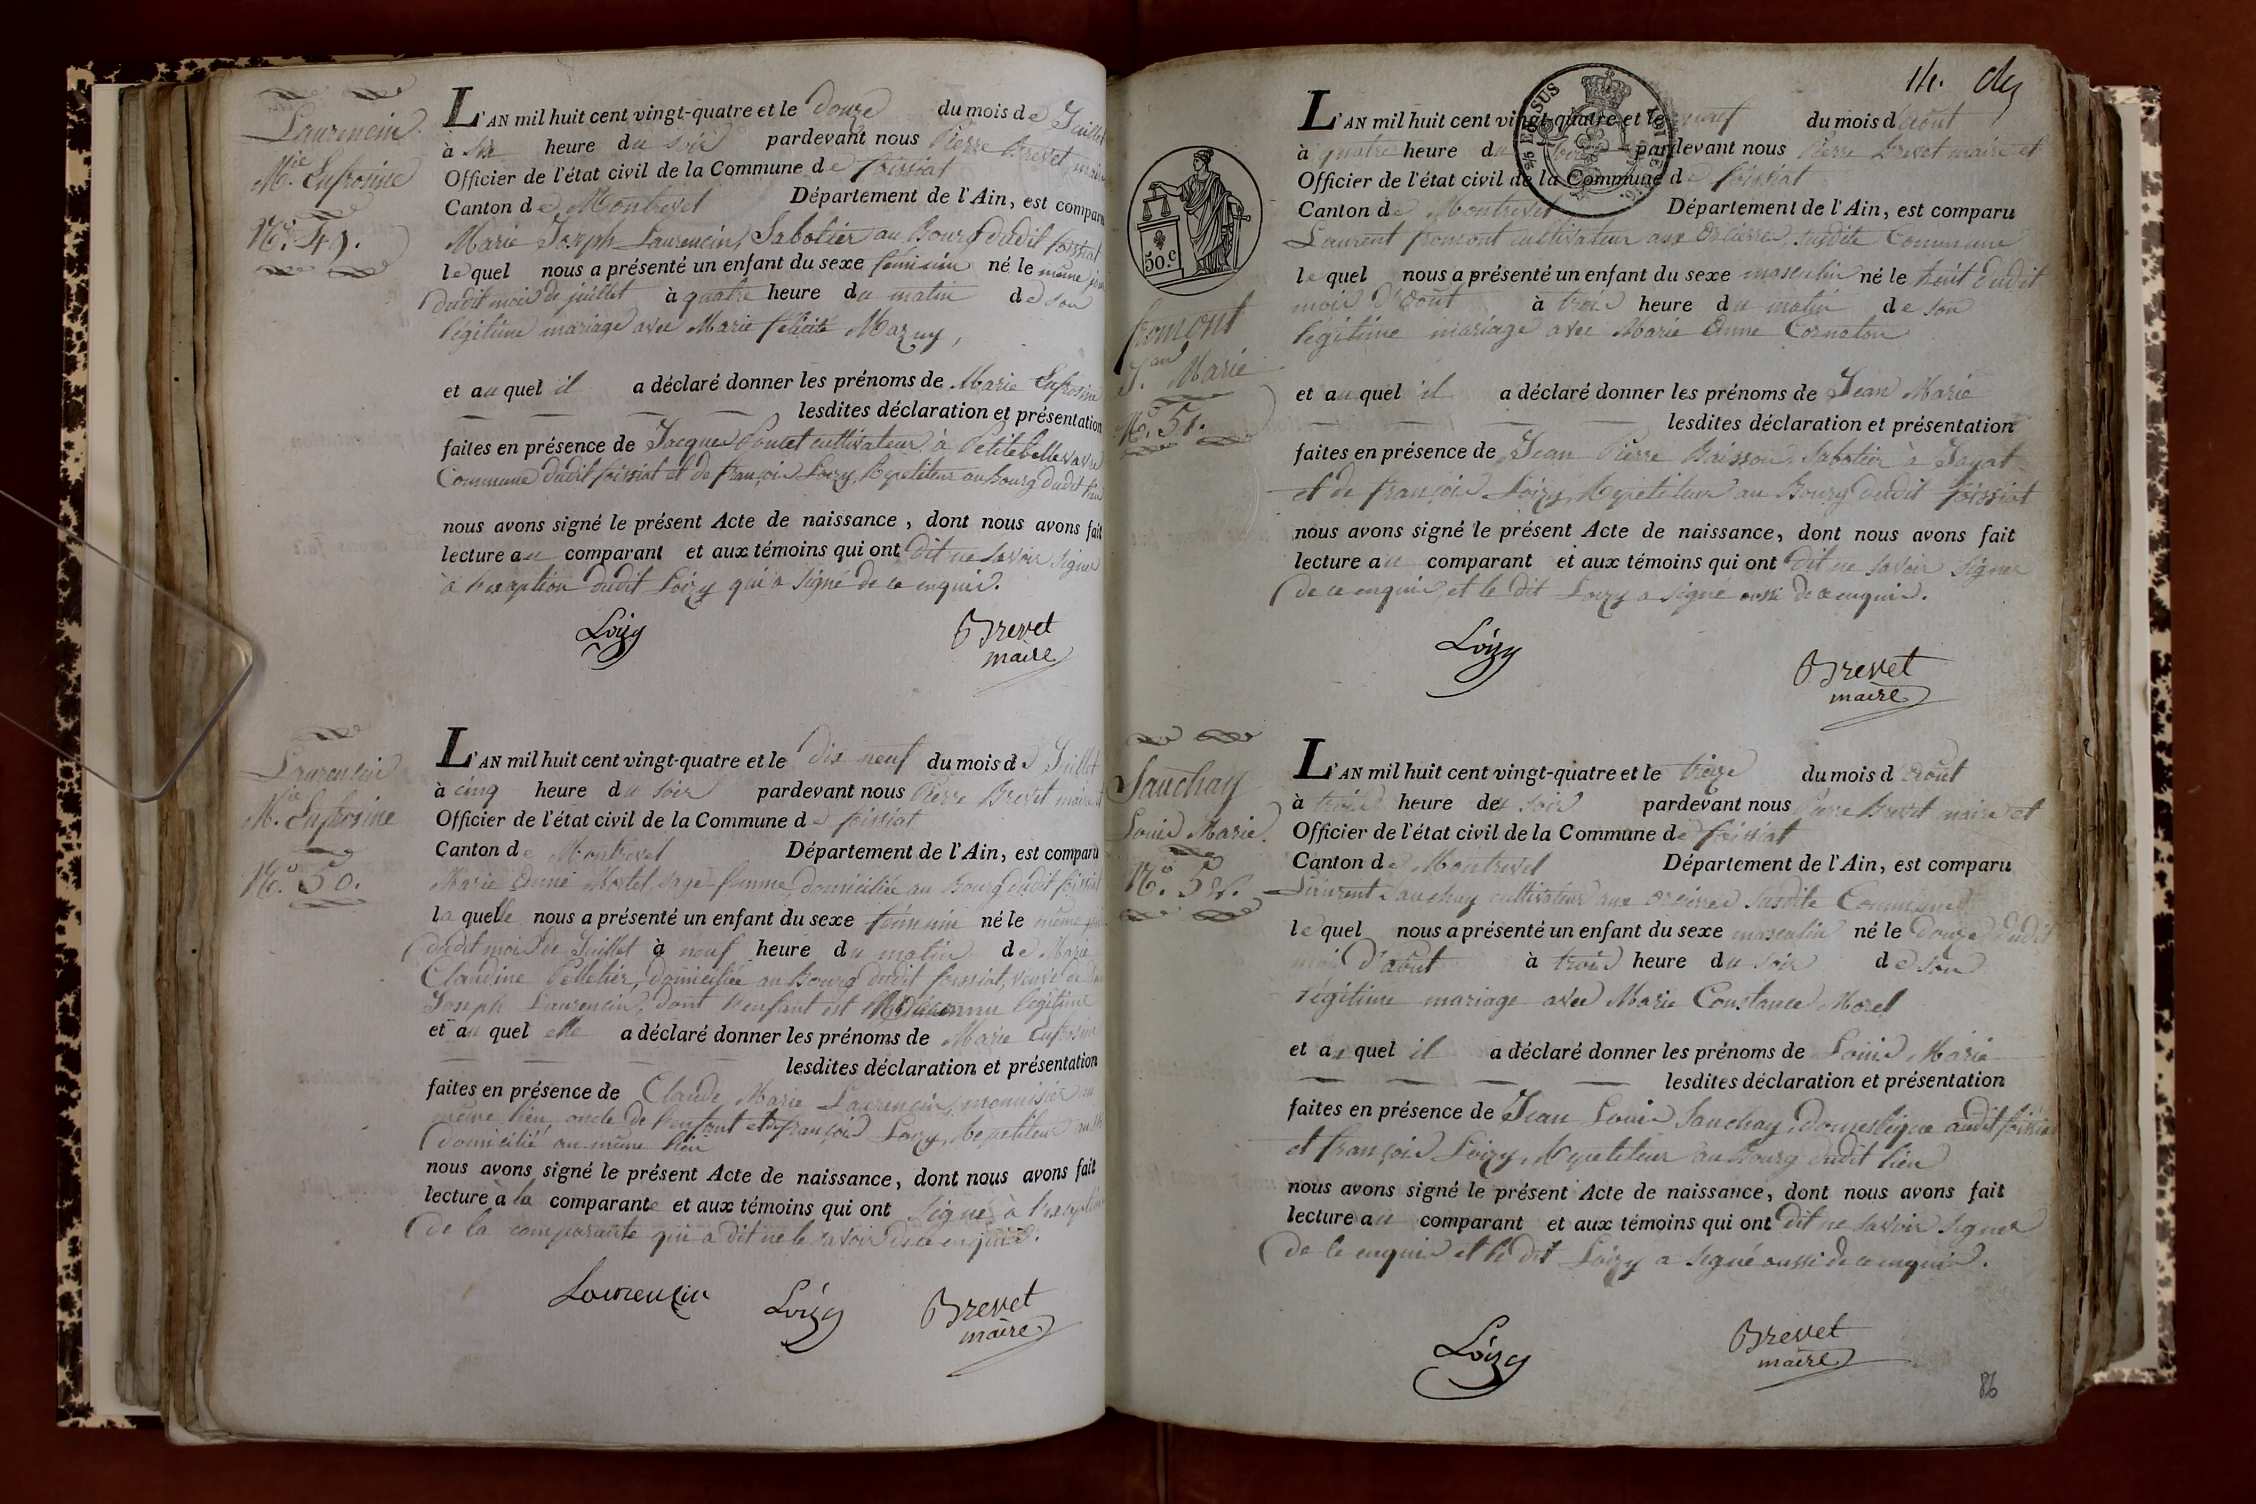 Laurencin
Mie Eufrosine
No. 49.
L'AN mil huit cent vingt-quatre et le douze du mois de Juillet
à six heure du soir pardevant nous Pierre Brevet maire
Officier de l'état civil de la Commune de foissiat
Canton de Montrevel Département de l'Ain, est comparu
Marie Joseph Laurencin, Sabotier au Bourg dudit foissiat
lequel nous a présenté un enfant du sexe féminin né le même jour
dudit mois de juillet à quatre heure du matin de son
légitime mariage avec Marie félicité Mazuy,
et auquel il a déclaré donner les prénoms de Marie Eufrosine
lesdites déclaration et présentation
faites en présence de Jacques Poncet cultivateur à
Commune dudit foissiat et de françois Loizy, Repetiteur au Bourg dudit lieu
nous avons signé le présent Acte de naissance, dont nous avons fait
lecture au comparant et aux témoins qui ont dit ne savoir signer
à l'exception dudit Loizy qui a signé de ce enquis.
Loizy Brevet
maire
Laurencin
Mie Eufrosine
No. 50.
L'AN mil huit cent vingt-quatre et le dix neuf du mois de Juillet
à cinq heure du soir pardevant nous Pierre Brevet maire et
Officier de l'état civil de la Commune de foissiat
Canton de Montrevel Département de l'Ain, est comparu
Marie Anne Mortel sage-femme, domiciliée au Bourg dudit foissiat
laquelle nous a présenté un enfant du sexe féminin né le même jour
dudit mois de Juillet à neuf heure du matin de Marie
Claudine Pelletier, domiciliée au Bourg dudit foissiat, veuve de
Joseph Laurencin, dont l'enfant est légitime
et auquel elle a déclaré donner les prénoms de Marie Eufrosine
lesdites déclaration et présentation
faites en présence de Claude Marie Laurencin, menuisier au
même lieu, oncle de l'enfant et de françois Loizy, Repetiteur
domicilié au même lieu
nous avons signé le présent Acte de naissance, dont nous avons fait
lecture à la comparante et aux témoins qui ont signé à l'exception
de la comparante qui a dit ne le savoir de ce enquise.
Laurencin Loizy Brevet
maire
14.
50.c
fromont
Jean Marie
No. 51.
L'AN mil huit cent vingt-quatre et le neuf du mois d'août
à quatre heure du soir pardevant nous Pierre Brevet maire et
Officier de l'état civil de la Commune de foissiat
Canton de Montrevel Département de l'Ain, est comparu
Laurent fromont cultivateur aux Orcières, susdite Commune
lequel nous a présenté un enfant du sexe masculin né le huit dudit
mois d'août à trois heure du matin de son
légitime mariage avec Marie Anne Cornaton
et auquel il a déclaré donner les prénoms de Jean Marie
lesdites déclaration et présentation
faites en présence de Jean Pierre Buisson, Sabotier à Jayat
et de françois Loizy, Repetiteur au Bourg dudit foissiat
nous avons signé le présent Acte de naissance, dont nous avons fait
lecture au comparant et aux témoins qui ont dit ne savoir signer
de ce enquis et le dit Loizy a signé aussi de ce enquis.
Loizy Brevet
maire
Sauchay
Louis Marie
No. 52.
L'AN mil huit cent vingt-quatre et le treize du mois d'août
à trois heure du soir pardevant nous Pierre Brevet maire et
Officier de l'état civil de la Commune de foissiat
Canton de Montrevel Département de l'Ain, est comparu
Laurent Sauchay cultivateur aux Orcières susdite Commune
lequel nous a présenté un enfant du sexe masculin né le douze dudit
mois d'août à trois heure du soir de son
légitime mariage avec Marie Constance Morel
et auquel il a déclaré donner les prénoms de Louis Marie
lesdites déclaration et présentation
faites en présence de Jean Louis Sauchay, domestique audit foissiat
et françois Loizy, Repetiteur au Bourg dudit lieu
nous avons signé le présent Acte de naissance, dont nous avons fait
lecture au comparant et aux témoins qui ont dit ne savoir signer
de ce enquis et le dit Loizy a signé aussi de ce enquis.
Loizy Brevet
maire
86